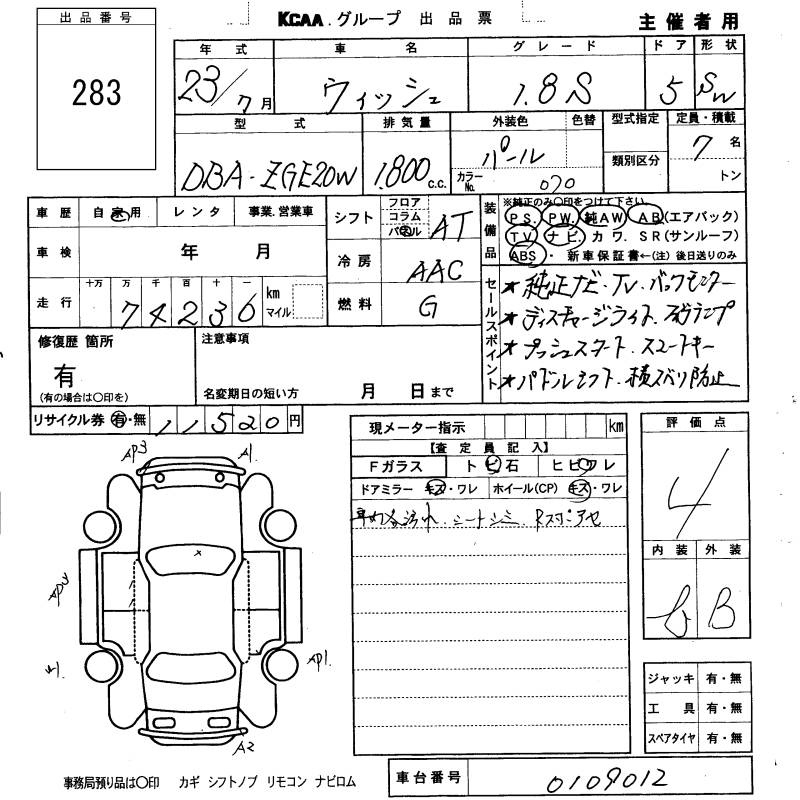 出品番号
283
KCAA.グループ 出品票
主催者用
年式 車名 グレード ドア 形状
23/7月 ウィッシュ 1.8S 5 SW
型式 排気量 外装色 色替 型式指定 定員・積載
DBA-ZGE20W 1,800c.c. パール 7名
カラーNo. 070 類別区分 トン
車歴 自家用 レンタ 事業.営業車
車検 年 月
走行 十万 万 千 百 十 一
74236 km マイル
シフト フロア コラム パネル AT
冷房 AAC
燃料 G
装備品 ※純正のみ○印をつけて下さい
PS. PW. 純AW AB(エアバック)
TV ナビ. カワ. SR(サンルーフ)
ABS・新車保証書←(注)後日送りのみ
セールスポイント
★純正ナビ.TV.バックモニター
★ディスチャージライト.フォグランプ
★プッシュスタート.スマートキー
★パドルシフト.横スベリ防止
修復歴 箇所
有
(有の場合は○印を)
注意事項
名変期日の短い方 月 日まで
リサイクル券 有・無 11520円
現メーター指示 km
【査定員記入】
Fガラス トビ石 ヒビワレ
ドアミラー キズ・ワレ ホイール(CP) キズ・ワレ
シートシミ
評価点
4
内装 外装
B
AP3
A1
AP1
A2
ジャッキ 有・無
工具 有・無
スペアタイヤ 有・無
事務局預り品は○印 カギ シフトノブ リモコン ナビロム
車台番号 0109012